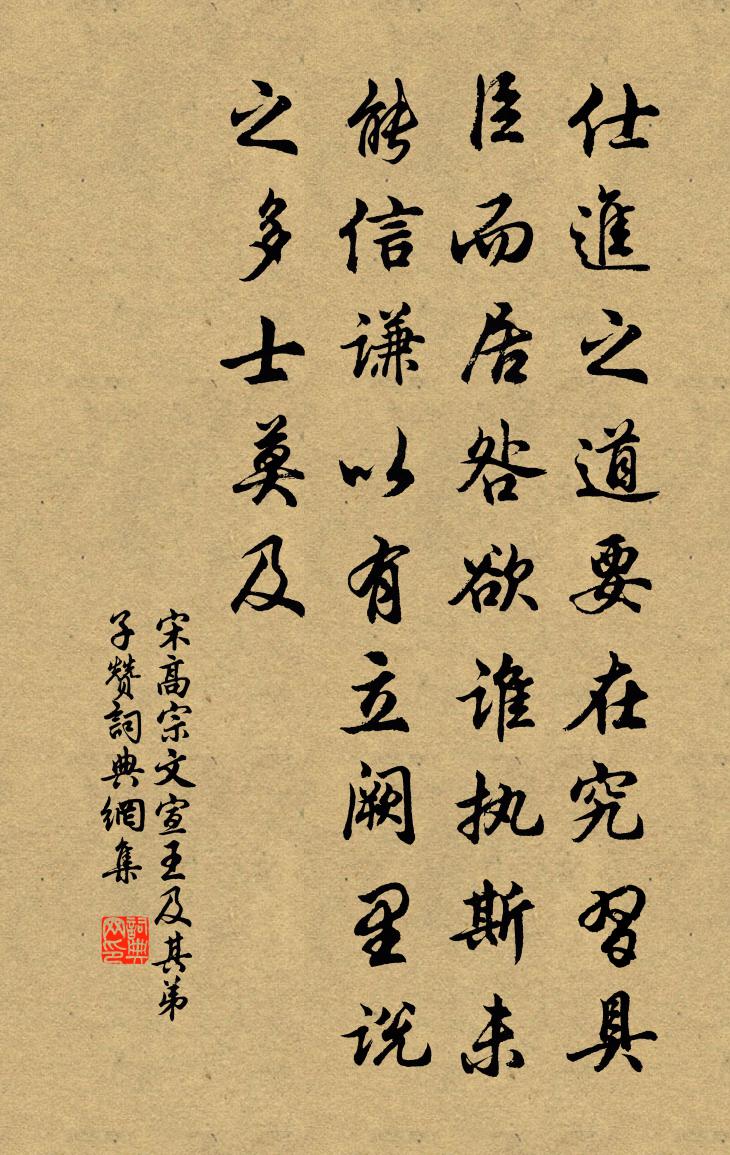 仕進之道要在究習具
臣而居咎欲誰执斯未
能信謙以有立阙里说
之多士莫及
宋高宗文宣王及其弟
子贊詞典網集
詞典
网印